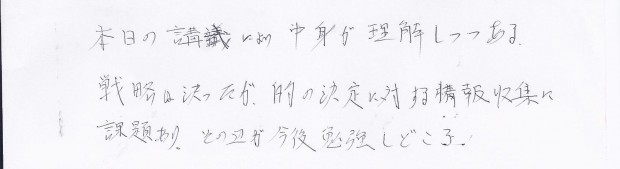 本日の講義により中身が理解しつつある。
戦略は決ったが、的の決定に対する情報収集に
課題あり、その辺が今後勉強しどころ。